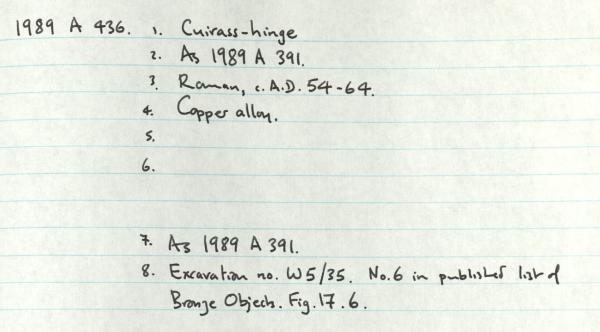 1989 A 436. 1. Cuirass-hinge
2. As 1989 A 391.
3. Roman, c. A.D. 54-64.
4. Copper alloy.
5.
6.
7. As 1989 A 391.
8. Excavation no. W5/35. No.6 in published list of
Bronze Objects. Fig. 17.6.